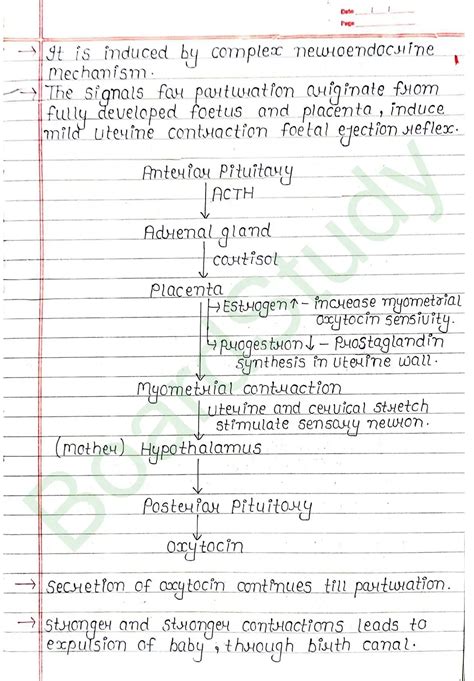 Date
Page
→ It is induced by complex neuroendocrine
mechanism.
→ The signals for parturation originate from
fully developed foetus and placenta, induce
mild uterine contraction foetal ejection reflex.
Anterior Pituitary
ACTH
Adrenal gland
cortisol
Placenta
→ Estrogen ↑ - increase myometrial
oxytocin sensivity.
→ progestron ↓ - Prostaglandin
synthesis in uterine wall.
Myometrial contraction
uterine and cervical stretch
stimulate sensory neuron.
(mother) Hypothalamus
Posterior Pituitory
oxytocin
→ Secretion of oxytocin continues till parturation.
→ Stronger and stronger contractions leads to
expulsion of baby, through birth canal.
BoardStudy